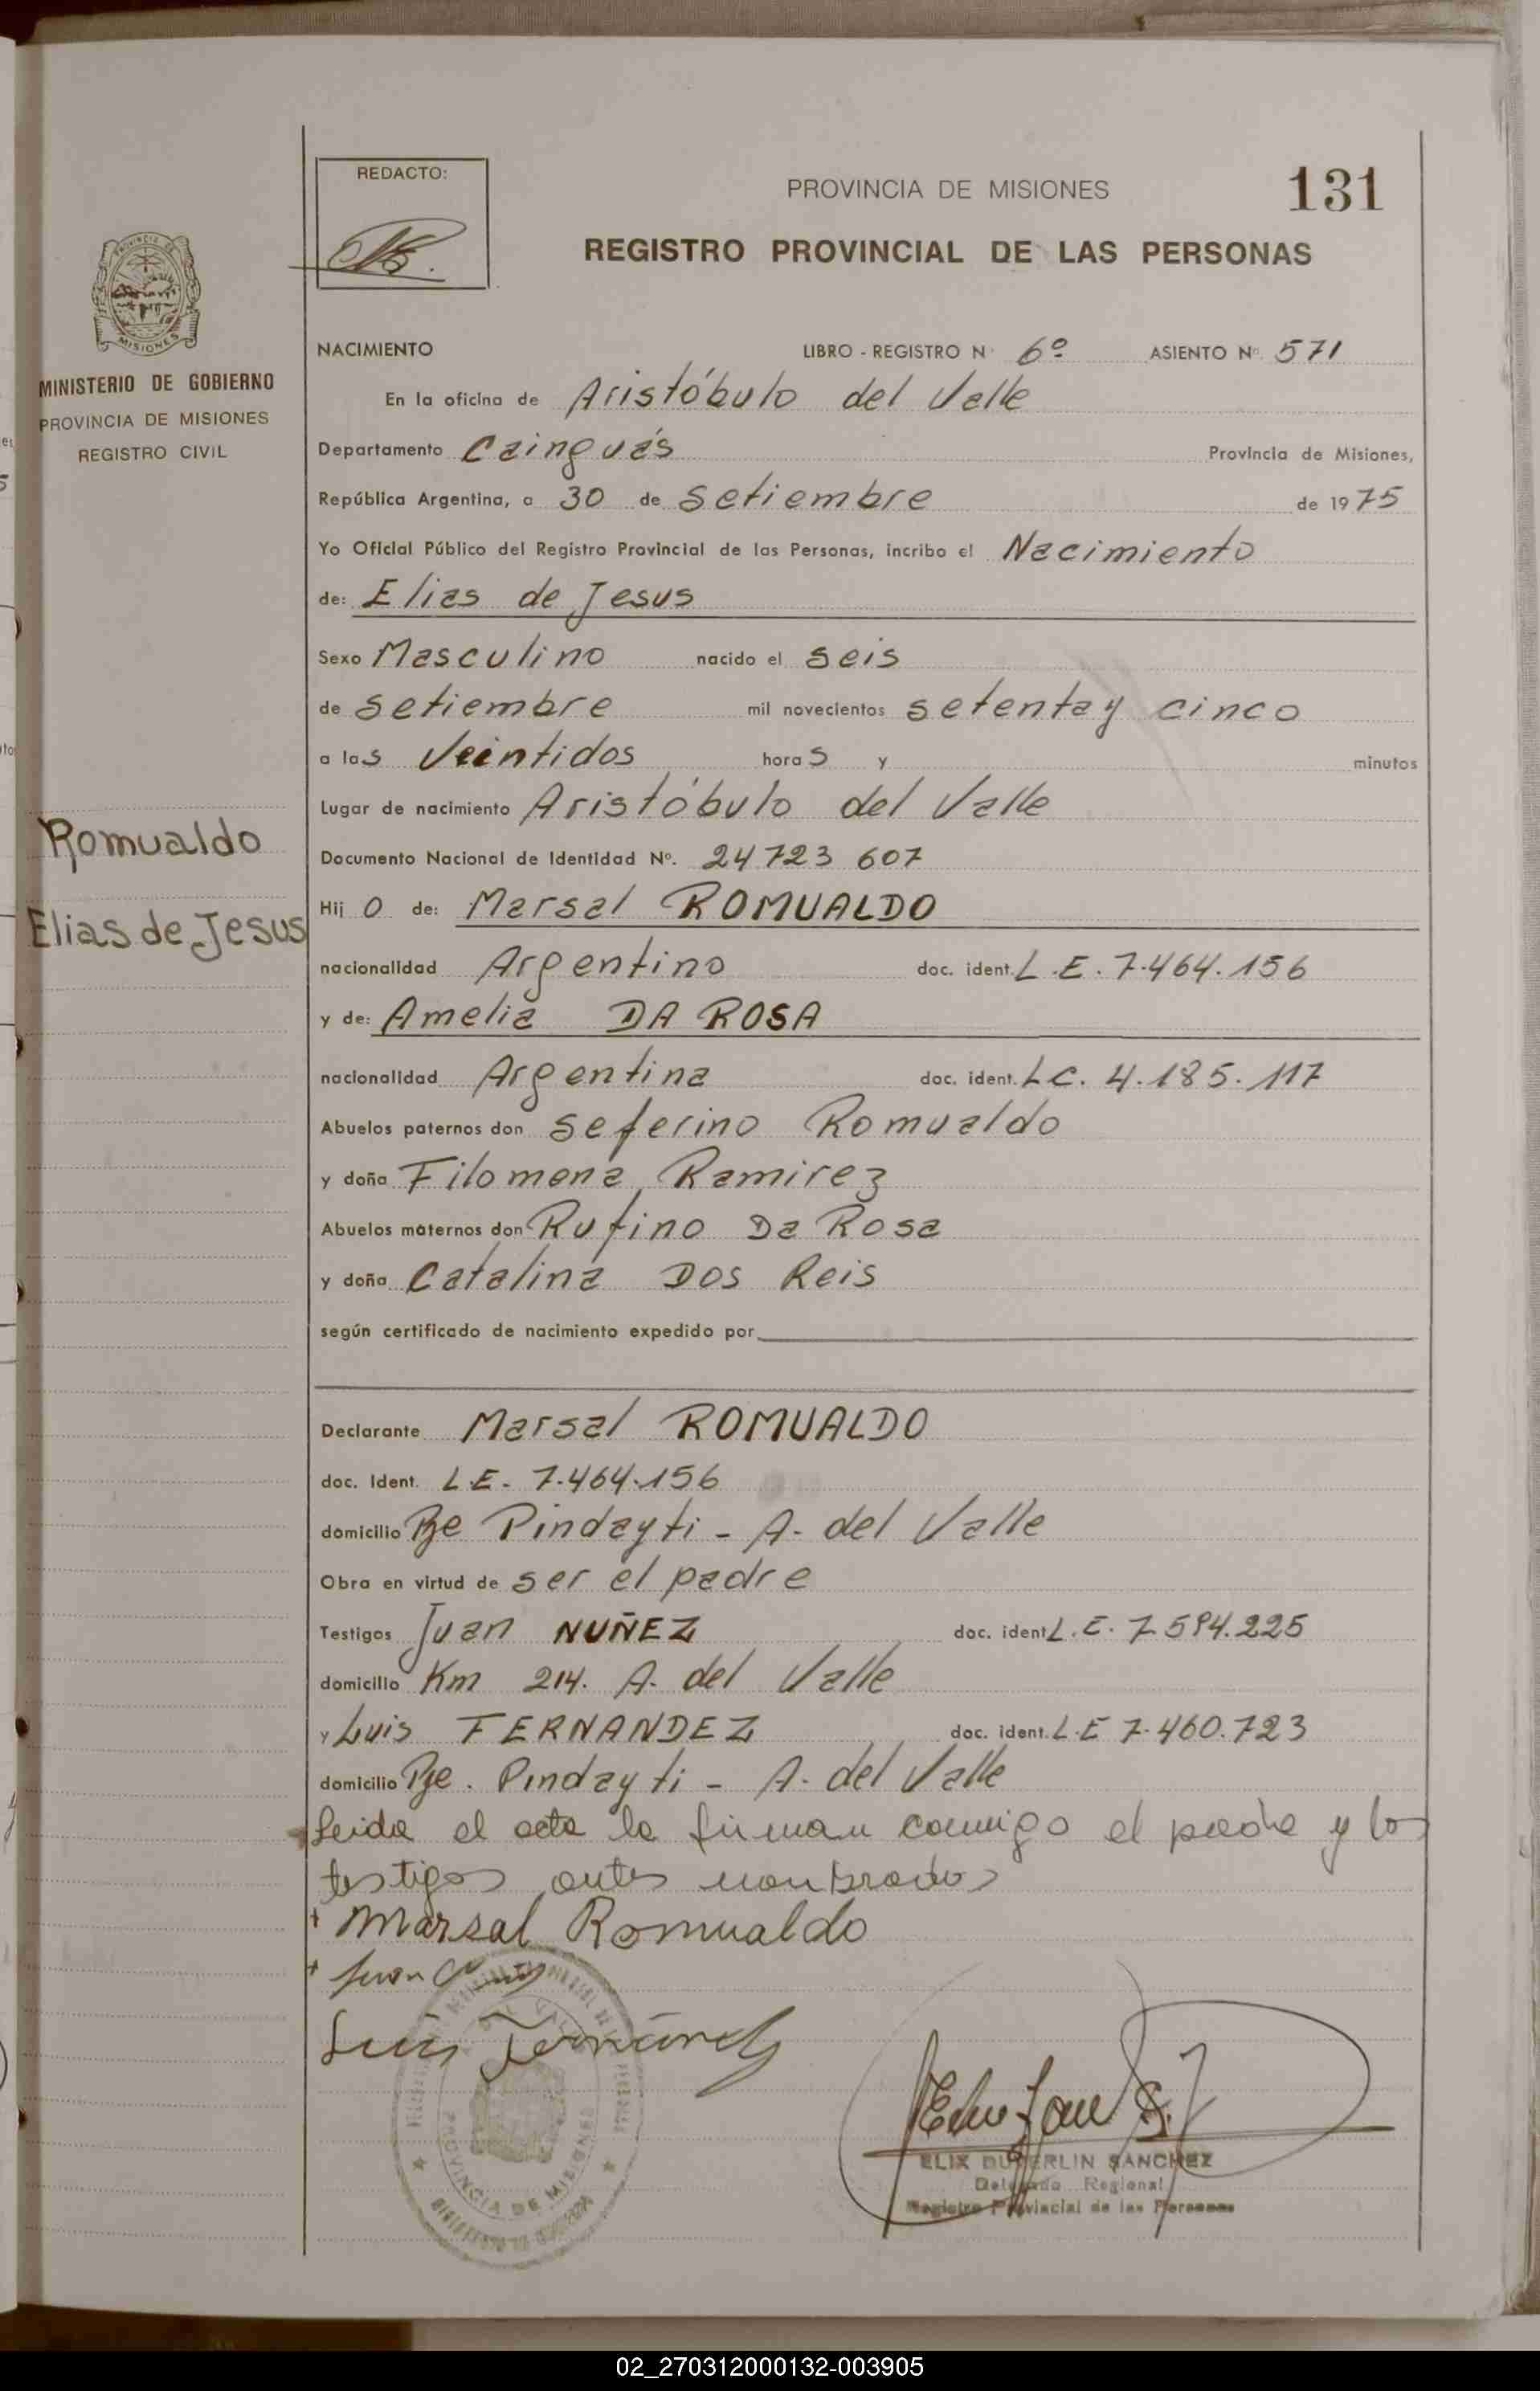 REDACTO:
PROVINCIA DE MISIONES
131
REGISTRO PROVINCIAL DE LAS PERSONAS
MISIONES
MINISTERIO DE GOBIERNO
PROVINCIA DE MISIONES
REGISTRO CIVIL
NACIMIENTO LIBRO - REGISTRO N° 6º ASIENTO Nº 571
En la oficina de Aristóbulo del Valle
Departamento Cainguás Provincia de Misiones,
República Argentina, a 30 de Setiembre de 1975
Yo Oficial Público del Registro Provincial de las Personas, incribo el Nacimiento
de: Elias de Jesus
Sexo Masculino nacido el seis
de setiembre mil novecientos setenta y cinco
a las Veintidos horas y minutos
Lugar de nacimiento Aristóbulo del Valle
Romualdo
Documento Nacional de Identidad Nº. 24723 607
Hijo de: Marsal ROMUALDO
Elias de Jesus
nacionalidad Argentino doc. ident. L.E. 7.464.156
y de: Amelia DA ROSA
nacionalidad Argentina doc. ident. L.C. 4.185.117
Abuelos paternos don Seferino Romualdo
y doña Filomena Ramirez
Abuelos maternos don Rufino Da Rosa
y doña Catalina Dos Reis
según certificado de nacimiento expedido por
Declarante Marsal ROMUALDO
doc. Ident. L.E. 7.464.156
domicilio Pje Pindayti - A. del Valle
Obra en virtud de ser el padre
Testigos Juan NUÑEZ doc. ident L.E. 7.594.225
domicilio Km 214. A. del Valle
y Luis FERNANDEZ doc. ident. L.E 7.460.723
domicilio Pje. Pindayti - A. del Valle
Leida el acta la firman conmigo el padre y los
testigos antes nombrados
Marsal Romualdo
Juan
Luis Fernández
PROVINCIA DE MISIONES
ELIX DUFERLIN SANCHEZ
Delegado Regional
Registro Provincial de las Personas
02_270312000132-003905